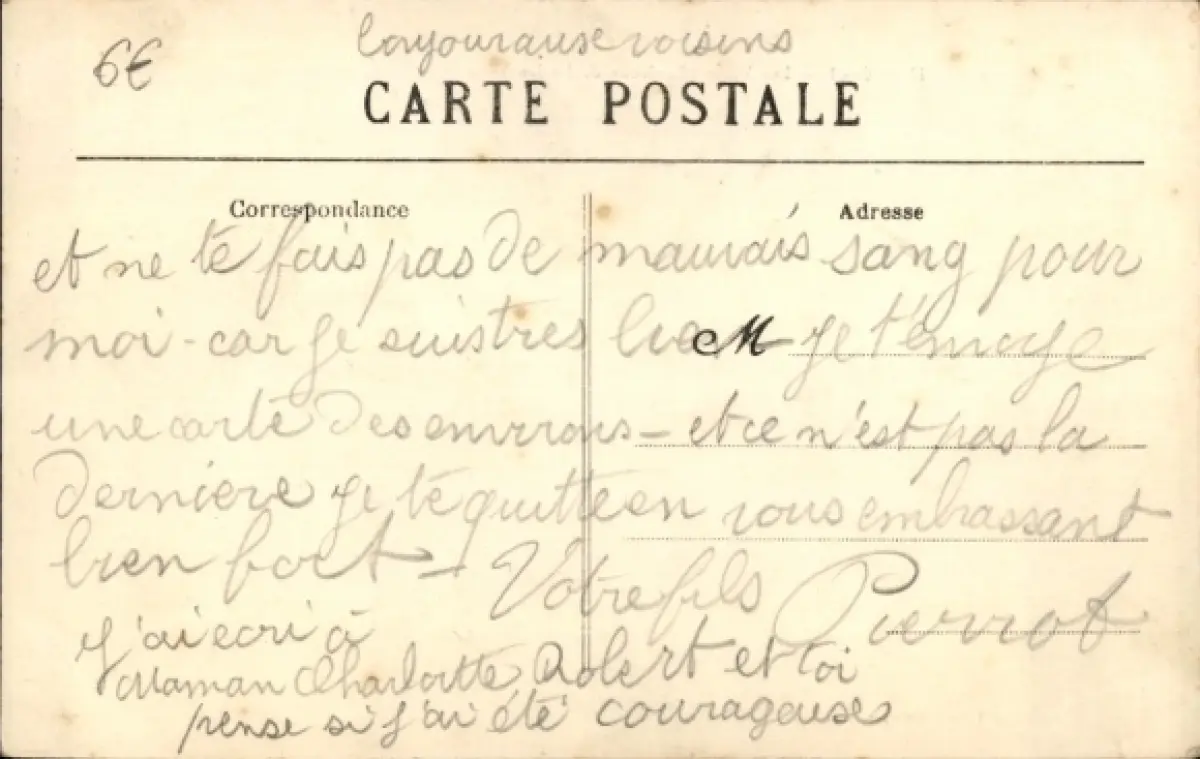 6€
bonjour aux voisins
CARTE POSTALE
Correspondance
Adresse
et ne te fais pas de mauvais sang pour
moi - car je suis tres bien M je t'envoye
une carte des environs - et ce n'est pas la
derniere je te quitte en vous embrassant
bien fort - Votre fils Pierrot
j'ai ecri à
Maman Charlotte Robert et toi
pense si j'ai été courageuse